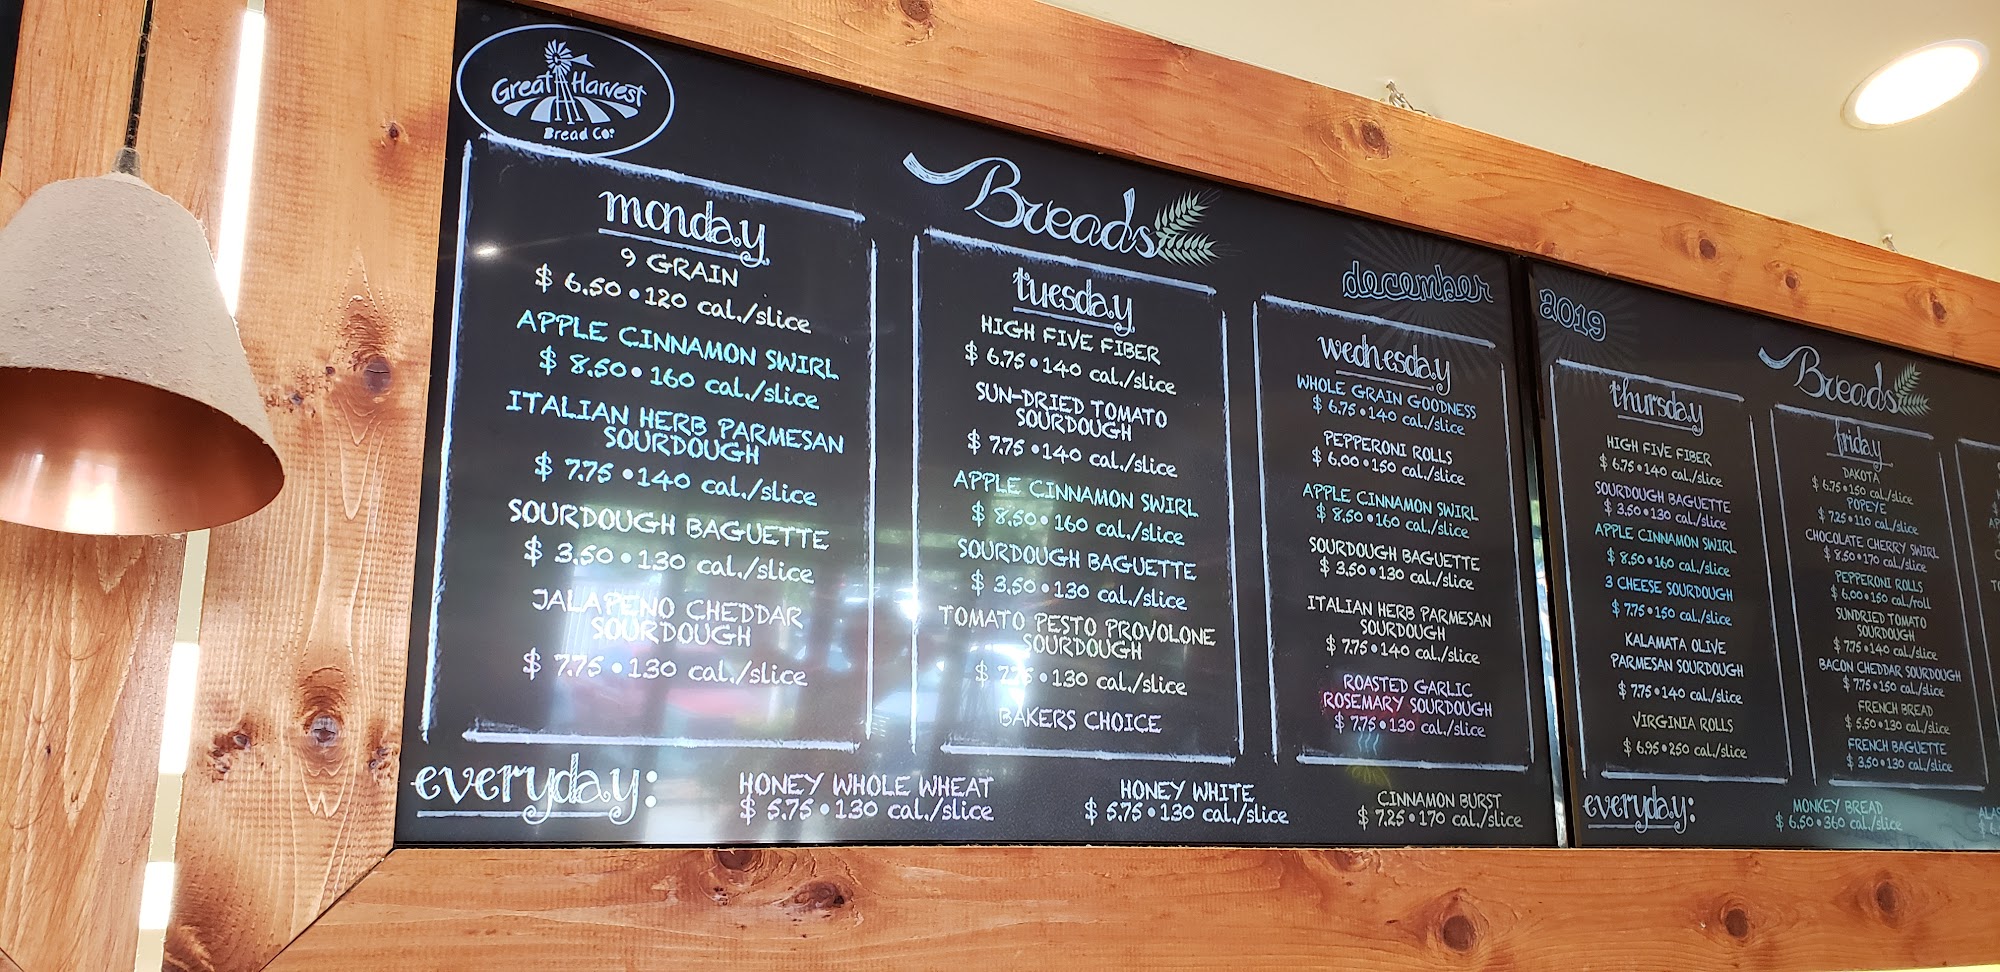 Great Harvest
Bread Co.
Breads
december
monday
9 GRAIN
$ 6.50 • 120 cal./slice
APPLE CINNAMON SWIRL
$ 8.50 • 160 cal./slice
ITALIAN HERB PARMESAN
SOURDOUGH
$ 7.75 • 140 cal./slice
SOURDOUGH BAGUETTE
$ 3.50 • 130 cal./slice
JALAPENO CHEDDAR
SOURDOUGH
$ 7.75 • 130 cal./slice
tuesday
HIGH FIVE FIBER
$ 6.75 • 140 cal./slice
SUN-DRIED TOMATO
SOURDOUGH
$ 7.75 • 140 cal./slice
APPLE CINNAMON SWIRL
$ 8.50 • 160 cal./slice
SOURDOUGH BAGUETTE
$ 3.50 • 130 cal./slice
TOMATO PESTO PROVOLONE
SOURDOUGH
$ 7.75 • 130 cal./slice
BAKERS CHOICE
wednesday
WHOLE GRAIN GOODNESS
$ 6.75 • 140 cal./slice
PEPPERONI ROLLS
$ 6.00 • 150 cal./slice
APPLE CINNAMON SWIRL
$ 8.50 • 160 cal./slice
SOURDOUGH BAGUETTE
$ 3.50 • 130 cal./slice
ITALIAN HERB PARMESAN
SOURDOUGH
$ 7.75 • 140 cal./slice
ROASTED GARLIC
ROSEMARY SOURDOUGH
$ 7.75 • 130 cal./slice
everyday:
HONEY WHOLE WHEAT
$ 5.75 • 130 cal./slice
HONEY WHITE
$ 5.75 • 130 cal./slice
CINNAMON BURST
$ 7.25 • 170 cal./slice
2019
Breads
thursday
HIGH FIVE FIBER
$ 6.75 • 140 cal./slice
SOURDOUGH BAGUETTE
$ 3.50 • 130 cal./slice
APPLE CINNAMON SWIRL
$ 8.50 • 160 cal./slice
3 CHEESE SOURDOUGH
$ 7.75 • 150 cal./slice
KALAMATA OLIVE
PARMESAN SOURDOUGH
$ 7.75 • 140 cal./slice
VIRGINIA ROLLS
$ 6.95 • 250 cal./slice
friday
DAKOTA
$ 6.75 • 150 cal./slice
POPEYE
$ 7.25 • 110 cal./slice
CHOCOLATE CHERRY SWIRL
$ 8.50 • 170 cal./slice
PEPPERONI ROLLS
$ 6.00 • 150 cal./roll
SUNDRIED TOMATO
SOURDOUGH
$ 7.75 • 140 cal./slice
BACON CHEDDAR SOURDOUGH
$ 7.75 • 150 cal./slice
FRENCH BREAD
$ 5.50 • 130 cal./slice
FRENCH BAGUETTE
$ 3.50 • 130 cal./slice
everyday:
MONKEY BREAD
$ 6.50 • 360 cal./slice